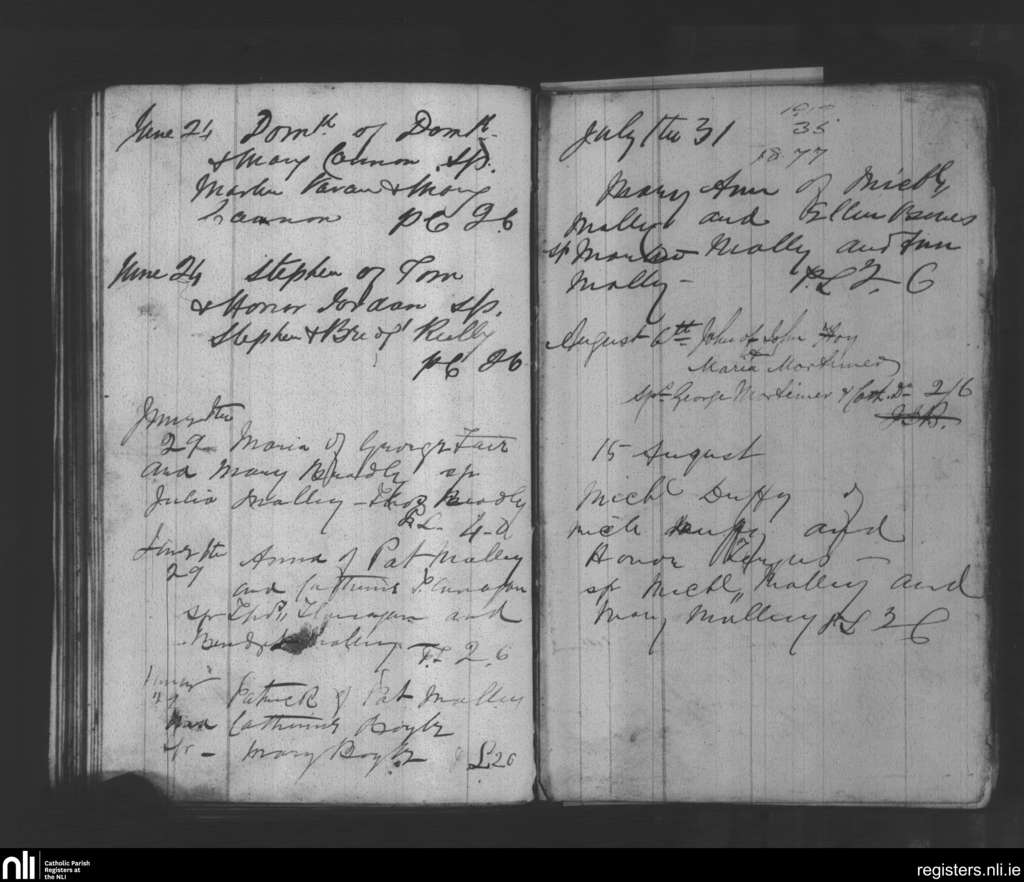 June 24 Domk of Domk
& Mary Cannon sp.
Martin & Mary
Cannon PC 2.6
June 24 Stephen of Tom
& Honor Jordan sp.
Stephen & Bridgt Reilly
PC 26
29 Maria of George Fair
and Mary sp
Julia Malley - Thos
4-0
29 Anna of Pat Malley
and Catherine Flanagan
sp Thos Flanagan and
Malley 2.6
Patrick of Pat Malley
and Catherine Boyle
sp - Mary Boyle 26
July the 31
35
1877
Mary Ann of Michl
Malley and Ellen
sp Malley and
Malley - 6
August 6th John of John Hoy
& Maria Mortimer
sps George Mortimer & Cath. Do 2/6
15 August
Michl Duffy of
Mich Duffy and
Honor
sp Michl Malley and
Mary Malley 2 6
nli
Catholic Parish
Registers at
the NLI
registers.nli.ie